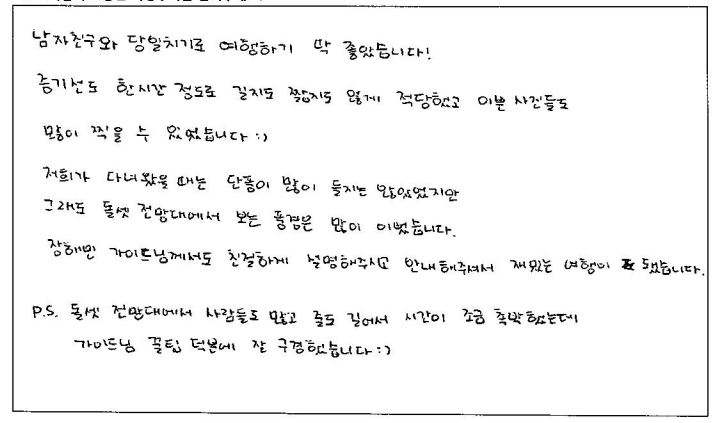 남자친구와 당일치기로 여행하기 딱 좋았습니다!
증기선도 한시간 정도로 길지도 짧지도 않게 적당했고 이쁜 사진들도
많이 찍을 수 있었습니다 :)
저희가 다녀왔을 때는 단풍이 많이 들지는 않았었지만
그래도 돌셋 전망대에서 보는 풍경은 많이 이뻤습니다.
장해민 가이드님께서도 친절하게 설명해주시고 안내해주셔서 재밌는 여행이 됐습니다.
P.S. 돌셋 전망대에서 사람들도 많고 줄도 길어서 시간이 조금 촉박했는데
가이드님 꿀팁 덕분에 잘 구경했습니다 :)